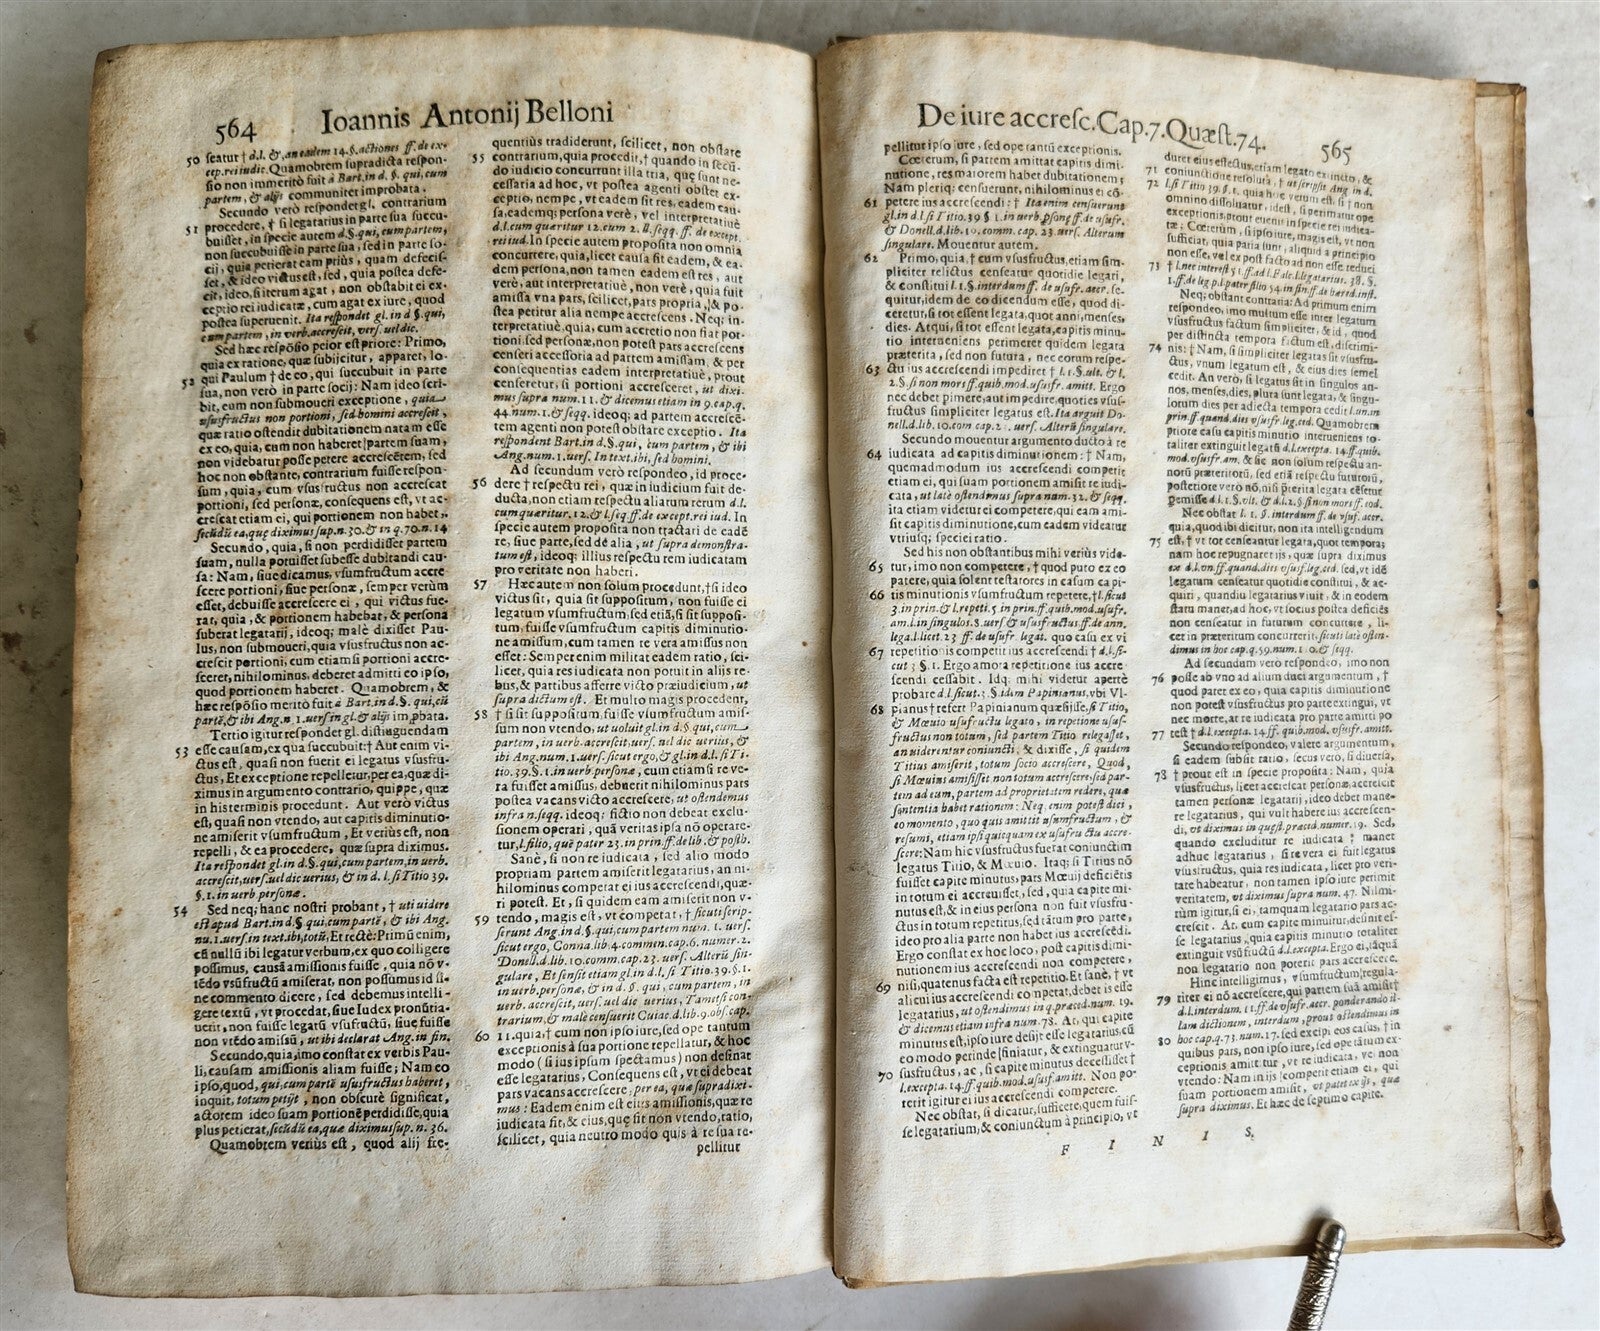 564 Ioannis Antonij Belloni
50 seatur † d.l. &, an eadem 14. §. actiones ff. de ex-
cep. rei iudic. Quamobrem supradicta respon-
sio non immeritò fuit à Bart. in d. §. qui, cum
partem, & alijs communiter improbata.
Secundo verò respondet gl. contrarium
51 procedere, † si legatarius in parte sua succu-
buisset, in specie autem d. §. qui, cum partem,
non succubuisse in parte sua, sed in parte so-
cij, quia petierat eam priùs, quam defecis-
set, & ideo victus est, sed, quia postea defe-
cit, ideo, si iterum agat, non obstabit ei ex-
ceptio rei iudicatæ, cum agat ex iure, quod
postea superuenit. Ita respondet gl. in d §. qui,
cum partem, in verb. accrescit, vers. uel dic.
Sed hæc respōsio peior est priore: Primo,
quia ex ratione, quæ subijcitur, apparet, lo-
52 qui Paulum † de eo, qui succubuit in parte
sua, non verò in parte socij: Nam ideo scri-
bit, eum non submoueri exceptione, quia
ususfructus non portioni, sed homini accrescit,
quæ ratio ostendit dubitationem natam esse
ex eo, quia, cum non haberet partem suam,
non videbatur posse petere accrescētem, sed
hoc non obstante, contrarium fuisse respon-
sum, quia, cum vsusfructus non accrescat
portioni, sed personæ, consequens est, vt ac-
crescat etiam ei, qui portionem non habet,
secūdū ea, quę diximus sup. n. 30. & in q. 70. n. 14
Secundo, quia, si non perdidisset partem
suam, nulla potuisset subesse dubitandi cau-
sa: Nam, siue dicamus, vsumfructum accre-
scere portioni, siue personæ, semper verùm
esset, debuisse accrescere ei, qui victus fue-
rat, quia, & portionem habebat, & persona
suberat legatarij, ideoq; malè dixisset Pau-
lus, non submoueri, quia vsusfructus non ac-
crescit portioni, cum etiam si portioni accre-
sceret, nihilominus, deberet admitti eo ipso,
quod portionem haberet. Quamobrem, &
hæc respōsio meritò fuit à Bart. in d. §. qui, cū
partē, & ibi Ang. n 1. vers. in gl. & alijs imṗbata.
Tertio igitur respondet gl. distinguendam
53 esse causam, ex qua succubuit: † Aut enim vi-
ctus est, quasi non fuerit ei legatus vsusfru-
ctus, Et exceptione repelletur, per ea, quæ di-
ximus in argumento contrario, quippe, quæ
in his terminis procedunt. Aut verò victus
est, quasi non vtendo, aut capitis diminutio-
ne amiserit vsumfructum, Et verius est, non
repelli, & ea procedere, quæ supra diximus.
Ita respondet gl. in d. §. qui, cum partem, in uerb.
accrescit, uers. uel dic uerius, & in d. l. si Titio 39.
§. 1. in uerb personæ.
54 Sed neq; hanc nostri probant, † uti uidere
est apud Bart. in d § qui, cum partē, & ibi Ang.
nu. 1. uers. in text. ibi, totū, Et rectè: Primū enim,
cū nullū ibi legatur verbum, ex quo colligere
possimus, causā amissionis fuisse, quia nō v-
tēdo vsūfructū amiserat, non possumus id si-
ne commento dicere, sed debemus intelli-
gere textū, vt procedat, siue Iudex pronūtia-
uerit, non fuisse legatū vsusfructū, siue fuisse
non vtēdo amissū, ut ibi declarat Ang. in fin.
Secundo, quia, imo constat ex verbis Pau-
li, causam amissionis aliam fuisse; Nam eo
ipso, quod, qui, cum partē ususfructus haberet,
inquit, totum petijt, non obscurè significat,
actorem ideo suam portionē perdidisse, quia
plus petierat, secūdū ea, quæ diximus sup. n. 36.
Quamobrem verius est, quod alij fre-
quentiùs tradiderunt, scilicet, non obstare
55 contrarium, quia procedit, † quando in secū-
do iudicio concurrunt illa tria, quę sunt ne-
cessaria ad hoc, vt postea agenti obstet ex-
ceptio, nempe, vt eadem sit res, eadem cau-
sa, eademq; persona verè, vel interpretatiuè
d. l. cum quæritur 12. cum 2. ll. seqq. ff. de except.
rei iud. In specie autem proposita non omnia
concurrere, quia, licet causa sit eadem, & ea-
dem persona, non tamen eadem est res, aut
verè, aut interpretatiuè, non verè, quia fuit
amissa vna pars, scilicet, pars propria, & po-
stea petitur alia nempe accrescens. Neq; in-
terpretatiuè, quia, cum accretio non fiat por-
tioni, sed personæ, non potest pars accrescens
censeri accessoria ad partem amissam, & per
consequentias eadem interpretatiuè, prout
censeretur, si portioni accresceret, ut dixi-
mus supra num. 11. & dicemus etiam in 9. cap. q.
44. num. 1. & seqq. ideoq; ad partem accrescē-
tem agenti non potest obstare exceptio. Ita
respondent Bart. in d. §. qui, cum partem, & ibi
Ang. num. 1. uers. In text. ibi, sed homini.
Ad secundum verò respondeo, id proce-
56 dere † respectu rei, quæ in iudicium fuit de-
ducta, non etiam respectu aliarum rerum d. l.
cum quæritur. 12. & l. seq. ff. de except. rei iud. In
specie autem proposita non tractari de eadē
re, siue parte, sed de alia, ut supra demonstra-
tum est, ideoq: illius respectu rem iudicatam
pro veritate non haberi.
57 Hæc autem non solùm procedunt, † si ideo
victus sit, quia sit suppositum, non fuisse ei
legatum vsumfructum, sed etiā, si sit supposi-
tum, fuisse vsumfructum capitis diminutio-
ne amissum, cum tamen re vera amissus non
esset: Semper enim militat eadem ratio, sci-
licet, quia res iudicata non potuit in alijs re-
bus, & partibus afferre victo præiudicium, ut
supra dictum est. Et multo magis procedent,
58 † si sit suppositum, fuisse vsumfructum amis-
sum non vtendo, ut uoluit gl. in d. § qui, cum
partem, in uerb. accrescit, uers. uel dic uerius, &
ibi Ang. num. 1. uers. sicut ergo, & gl. in d. l. si Ti-
tio. 39. §. 1. in uerb. personæ, cum etiam si re ve-
ra fuisset amissus, debuerit nihilominus pars
postea vacans victo accrescere, ut ostendemus
infra n. seqq. ideoq; fictio non debeat exclu-
sionem operari, quā veritas ipsa nō operare-
tur, l. filio, quē pater 23. in prin. ff. de lib. & posth.
Sanè, si non re iudicata, sed alio modo
propriam partem amiserit legatarius, an ni-
hilominus competat ei ius accrescendi, quæ-
ri potest. Et, si quidem eam amiserit non v-
59 tendo, magis est, vt competat, † sicuti scrip-
serunt Ang. in d. §. qui, cum partem num. 1. uers.
sicut ergo, Conna. lib. 4. commen. cap. 6. numer. 2.
Donell. d. lib. 10. comm. cap. 23. uers. Alterū sin-
gulare, Et sensit etiam gl. in d. l. si Titio. 39. §. 1.
in uerb. personæ, & in d. §. qui, cum partem, in
uerb. accrescit, uers. uel dic uerius, Tametsi con-
trarium, & malè censuerit Cuiac. d. lib. 9. obs. cap.
60 11. quia, † cum non ipso iure, sed ope tantum
exceptionis à sua portione repellatur, & hoc
modo (si ius ipsum spectamus) non desinat
esse legatarius, Consequens est, vt ei debeat
pars vacans accrescere, per ea, quæ supra dixi-
mus: Eadem enim est eius amissionis, quæ re
iudicata fit, & eius, quę fit non vtendo, ratio,
scilicet, quia neutro modo quis à re sua re-
pellitur
De iure accresc. Cap. 7. Quæst. 74. 565
pellitur ipso iure, sed ope tantū exceptionis.
Cœterum, si partem amittat capitis dimi-
nutione, res maiorem habet dubitationem;
Nam pleriq; censuerunt, nihilominus ei cō-
61 petere ius accrescendi: † Ita enim censuerunt
gl. in d. l. si Titio. 39 § 1. in uerb. psonę ff. de usufr.
& Donell. d. lib. 10. comm. cap. 23. uers. Alterum
singulare. Mouentur autem.
62 Primo, quia, † cum vsusfructus, etiam sim-
pliciter relictus censeatur quotidie legari,
& constitui l. 1. §. interdum ff. de usufr. accr. se-
quitur, idem de eo dicendum esse, quod di-
ceretur, si tot essent legata, quot anni, menses,
dies. Atqui, si tot essent legata, capitis minu-
tio interueniens perimeret quidem legata
præterita, sed non futura, nec eorum respe-
63 ctu ius accrescendi impediret † l. 1. §. ult. & l.
2. §. si non mors ff. quib. mod. ususfr. amitt. Ergo
nec debet pimere, aut impedire, quoties vsus-
fructus simpliciter legatus est. Ita arguit Do-
nell. d. lib. 10. com cap. 23. uers. Alterū singulare.
Secundo mouentur argumento ducto à re
64 iudicata ad capitis diminutionem: † Nam,
quemadmodum ius accrescendi competit
etiam ei, qui suam portionem amisit re iudi-
cata, ut latè ostendimus supra num. 32. & seqq.
ita etiam videtur ei competere, qui eam ami-
sit capitis diminutione, cum eadem videatur
vtriusq; speciei ratio.
Sed his non obstantibus mihi veriùs vide-
65 tur, imo non competere, † quod puto ex eo
patere, quia solent testatores in casum capi-
66 tis minutionis vsumfructum repetere, † l. sicut
3. in prin. & l. repeti. 5 in prin. ff. quib. mod. ususfr.
am. l. in singulos. 8. uers & ususfructus. ff. de ann.
lega. l. licet. 23 ff. de usufr. legat. quo casu ex vi
67 repetitionis competit ius accrescendi † d. l. si-
cut 3 §. 1. Ergo amota repetitione ius accre-
scendi cessabit. Idq. mihi videtur apertè
probare d. l. sicut. 3. §. idem Papinianus, vbi Vl-
68 pianus † refert Papinianum quæsijsse, si Titio,
& Mæuio usufructu legato, in repetione usus-
fructus non totum, sed partem Titio relegasset,
an uiderentur coniuncti, & dixisse, si quidem
Titius amiserit, totum socio accrescere, Quod,
si Mæuius amisisset non totum accrescere, sed par-
tem ad eum, partem ad proprietatem redere, quæ
sententia habet rationem: Neq. enim potest dici,
eo momento, quo quis amittit usumfructum, &
resumi, etiam ipsi quicquam ex usufructu accre-
scere: Nam hic vsusfructus fuerat coniunctim
legatus Titio, & Mæuio. Itaq; si Titius nō
fuisset capite minutus, pars Mæuij deficiētis
in totum ei accreuisset, sed, quia capite mi-
nutus est, & in eius persona non fuit vsusfru-
ctus in totum repetitus, sed tātum pro parte,
ideo pro alia parte non habet ius accrescēdi.
Ergo constat ex hoc loco, post capitis dimi-
nutionem ius accrescendi non competere,
69 nisi, quatenus facta est repetitio. Et sanè, † vt
alicui ius accrescendi competat, debet is esse
legatarius, ut ostendimus in q. præced. num. 19.
& dicemus etiam infra num. 78. At, qui capite
minutus est, ipso iure desijt esse legatarius, cū
eo modo perinde finiatur, & extinguatur v-
70 susfructus, ac, si capite minutus decessisset †
l. excepta. 14. ff. quib. mod. ususf. amitt. Non po-
terit igitur ei ius accrescendi competere.
Nec obstat, si dicatur, sufficere, quem fuis-
se legatarium, & coniunctum à principio, vt
duret eius effectus, etiam legato extincto, &
71 coniunctione resoluta, † ut scripsit Ang in d.
72 l. si Titio 39. §. 1. quia hoc verum est, si † non
omnino dissoluatur, idest, si perimatur ope
exceptionis, prout euenit in specie rei iudica-
tæ; Cœterum, si ipso iure, magis est, vt non
sufficiat, quia paria sunt, aliquid a principio
non esse, vel ex post facto ad non esse reduci
73 † l. nec interest § 1. ff. ad l. Falc. l. legatarius. 38. §.
1. ff. de leg. p. l. pater filio 54. in fin. ff. de hæred. inst.
Neq; obstant contraria: Ad primum enim
respondeo, imo multum esse inter legatum
vsusfructus factum simpliciter, & id, quod
per distincta tempora factum est, discrimi-
74 nis: † Nam, si simpliciter legatus sit vsusfru-
ctus, vnum legatum est, & eius dies semel
cedit. An verò, si legatus sit in singulos an-
nos, menses, dies, plura sunt legata, & singu-
lorum dies per adiecta tempora cedit l. un. in
prin. ff. quand. dies ususfr. leg. ced. Quamobrem
priore casu capitis minutio interueniens to-
taliter extinguit legatū d. l. excepta. 14. ff. quib.
mod. vsusfr. am. & sic non solum respectu an-
norū præteritorū, sed etiā respectu futurorū,
posteriore verò nō, nisi p̄terita legata cēsetur
p̄emisse d. l. 1. §. vlt. & d. l. 2. §. si non mors ff. eod.
Nec obstat l. 1. §. interdum ff. de vsuf. accr.
quia, quod ibi dicitur, non ita intelligendum
75 est, † vt tot censeantur legata, quot tempora;
nam hoc repugnaret ijs, quæ supra diximus
ex d. l. vn. ff. quand. dies vsusf. leg. ced. sed, vt idē
legatum censeatur quotidie constitui, & ac-
quiri, quandiu legatarius viuit, & in eodem
statu manet, ad hoc, vt socius postea deficiēs
non censeatur in futurum concurrere, li-
cet in præteritum concurrerit, sicuti latè osten-
dimus in hoc cap. q. 59. num. 10. & seqq.
Ad secundam verò respondeo, imo non
76 posse ab vno ad alium duci argumentum, †
quod patet ex eo, quia capitis diminutione
non potest vsusfructus pro parte extingui, vt
nec morte, at re iudicata pro parte amitti po
77 test † d. l. excepta. 14. ff. quib. mod. vsusfr. amitt.
Secundo respondeo, valere argumentum,
si eadem subsit ratio, secus verò, si diuersa,
78 † prout est in specie proposita: Nam, quia
vsusfructus, licet accrescat personæ, accrescit
tamen personæ legatarij, ideo debet mane-
re legatarius, qui vult habere ius accrescen-
di, vt diximus in quæst. præced. numer. 19. Sed,
quando excluditur re iudicata; manet
adhuc legatarius, si re vera ei fuit legatus
vsusfructus, quia res iudicata, licet pro veri-
tate habeatur, non tamen ipso iure perimit
veritatem, vt diximus supra num. 47. Nil mi-
rūm igitur, si ei, tamquam legatario pars ac-
crescit. At, cum capite minuitur, desinit es-
se legatarius, quia capitis minutio totaliter
extinguit vsūfructū d. l. excepta. Ergo ei, tāquā
non legatario non poterit pars accrescere.
Hinc intelligimus, vsumfructum, regula-
79 riter ei nō accrescere, qui partem suā amisit †
d. l. interdum. 1 §. ff. de vsufr. accr. ponderando il-
lam dictionem, interdum, prout ostendimus in
80 hoc cap. q. 73. num. 17. sed excipi eos casus, † in
quibus pars, non ipso iure, sed ope tātum ex-
ceptionis amittitur, vt re iudicata, vel non
vtendo: Nam in ijs competit etiam ei, qui
suam portionem amisit, vt patet ex ijs, quæ
supra diximus. Et hæc de septimo capite.
F I N I S.